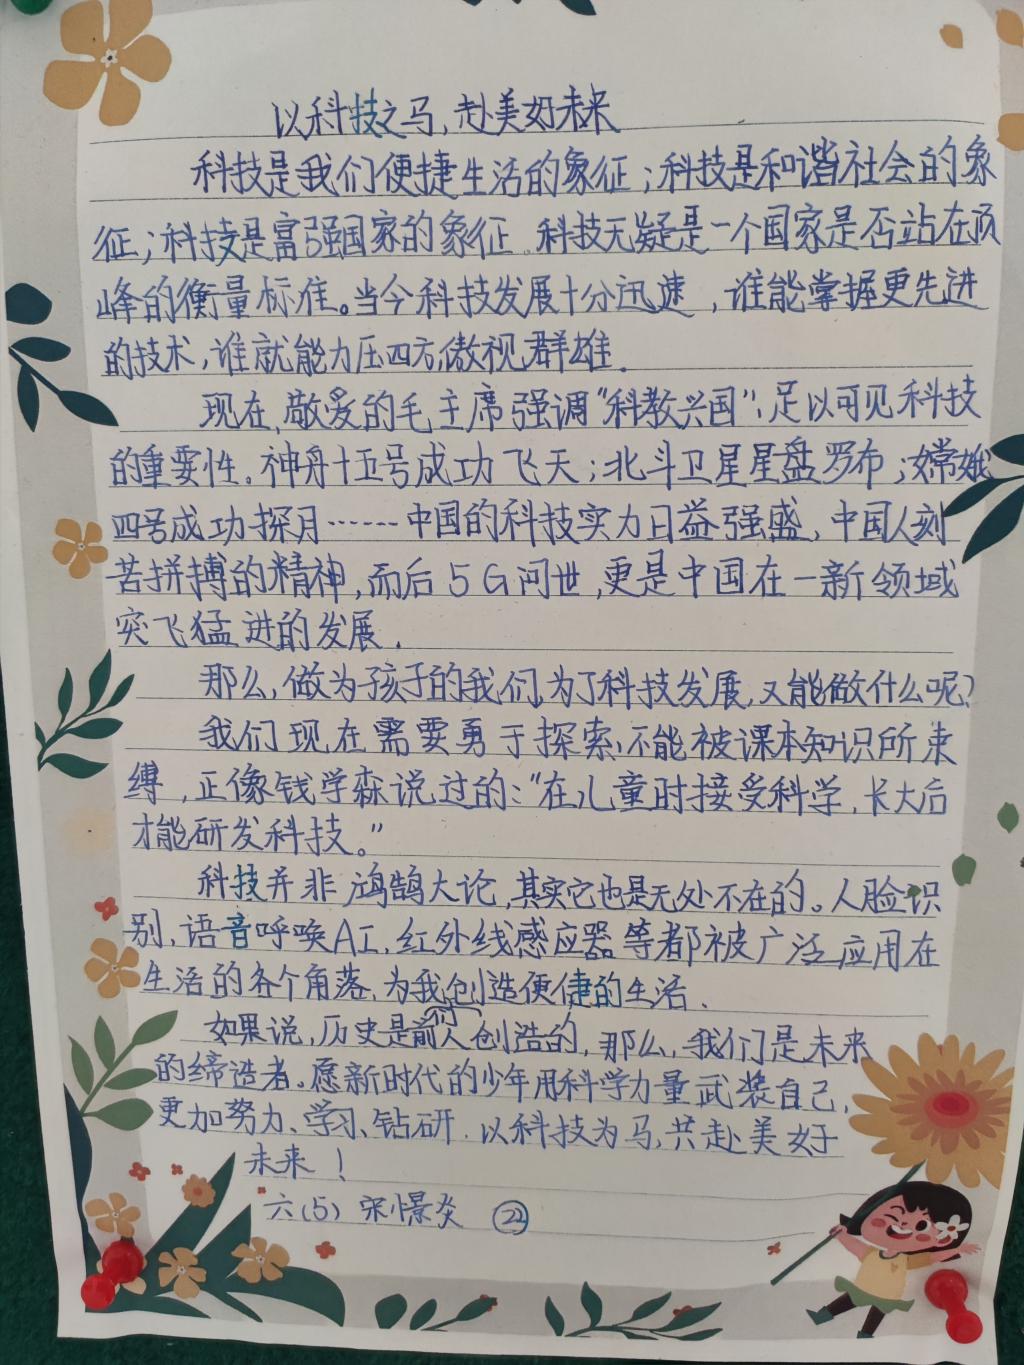 以科技之马,赴美好未来
科技是我们便捷生活的象征;科技是和谐社会的象
征;科技是富强国家的象征。科技无疑是一个国家是否站在顶
峰的衡量标准。当今科技发展十分迅速,谁能掌握更先进
的技术,谁就能力压四方,傲视群雄.
现在,敬爱的毛主席强调“科教兴国”,足以可见科技
的重要性。神舟十五号成功飞天;北斗卫星星盘罗布;嫦娥
四号成功探月……中国的科技实力日益强盛,中国人刻
苦拼搏的精神,而后5G问世,更是中国在一新领域
突飞猛进的发展.
那么,做为孩子的我们,为了科技发展,又能做什么呢?
我们现在需要勇于探索,不能被课本知识所束
缚,正像钱学森说过的:“在儿童时接受科学,长大后
才能研发科技。”
科技并非鸿鹄大论,其实它也是无处不在的。人脸识
别,语音呼唤AI,红外线感应器等都被广泛应用在
生活的各个角落,为我们创造便捷的生活.
如果说,历史是前人创造的,那么,我们是未来
的缔造者。愿新时代的少年用科学力量武装自己,
更加努力、学习、钻研.以科技为马,共赴美好
未来!
六(5) 宋憬炎 ㉒